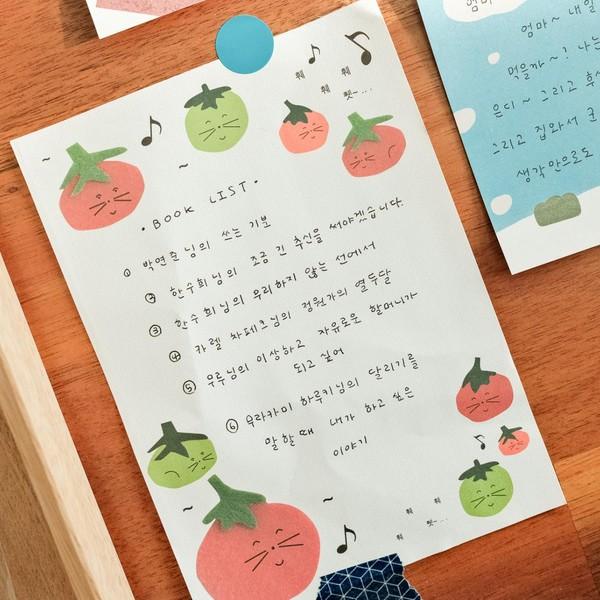 휙
휙
휙
휙
쳇~...
• BOOK LIST •
① 박연준님의 쓰는 기분
② 한수희님의 조금 긴 추신을 써야겠습니다
③ 한수희님의 무리하지 않는 선에서
④ 카렐 차페크님의 정원가의 열두달
⑤ 무루님의 이상하고 자유로운 할머니가
되고 싶어
⑥ 무라카미 하루키님의 달리기를
말할때 내가 하고 싶은
이야기
엄마~ 내일
먹을까~? 나는
그리고 집와서
생각만으로도